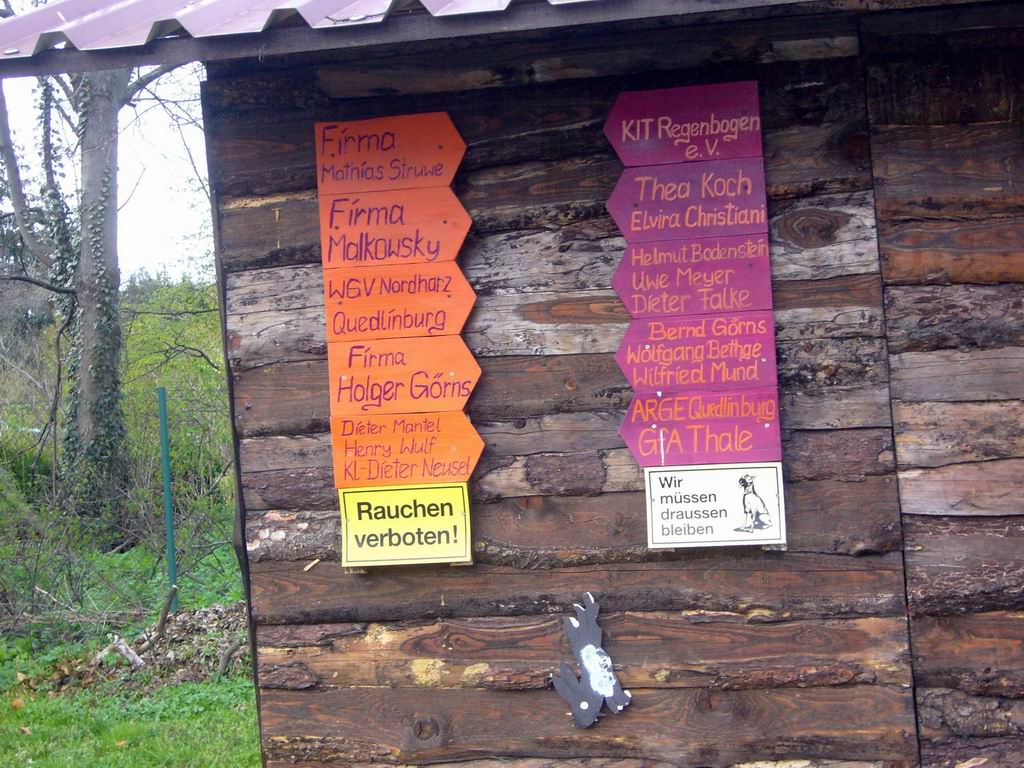 Firma
Mathias Struwe
Firma
Malkowsky
WGV Nordharz
Quedlinburg
Firma
Holger Görns
Dieter Mantel
Henry Wulf
Kl-Dieter Neusel
Rauchen
verboten!
KIT Regenbogen
e.V.
Thea Koch
Elvira Christiani
Helmut Bodenstein
Uwe Meyer
Dieter Falke
Bernd Görns
Wolfgang Bethge
Wilfried Mund
ARGE Quedlinburg
GfA Thale
Wir
müssen
draussen
bleiben